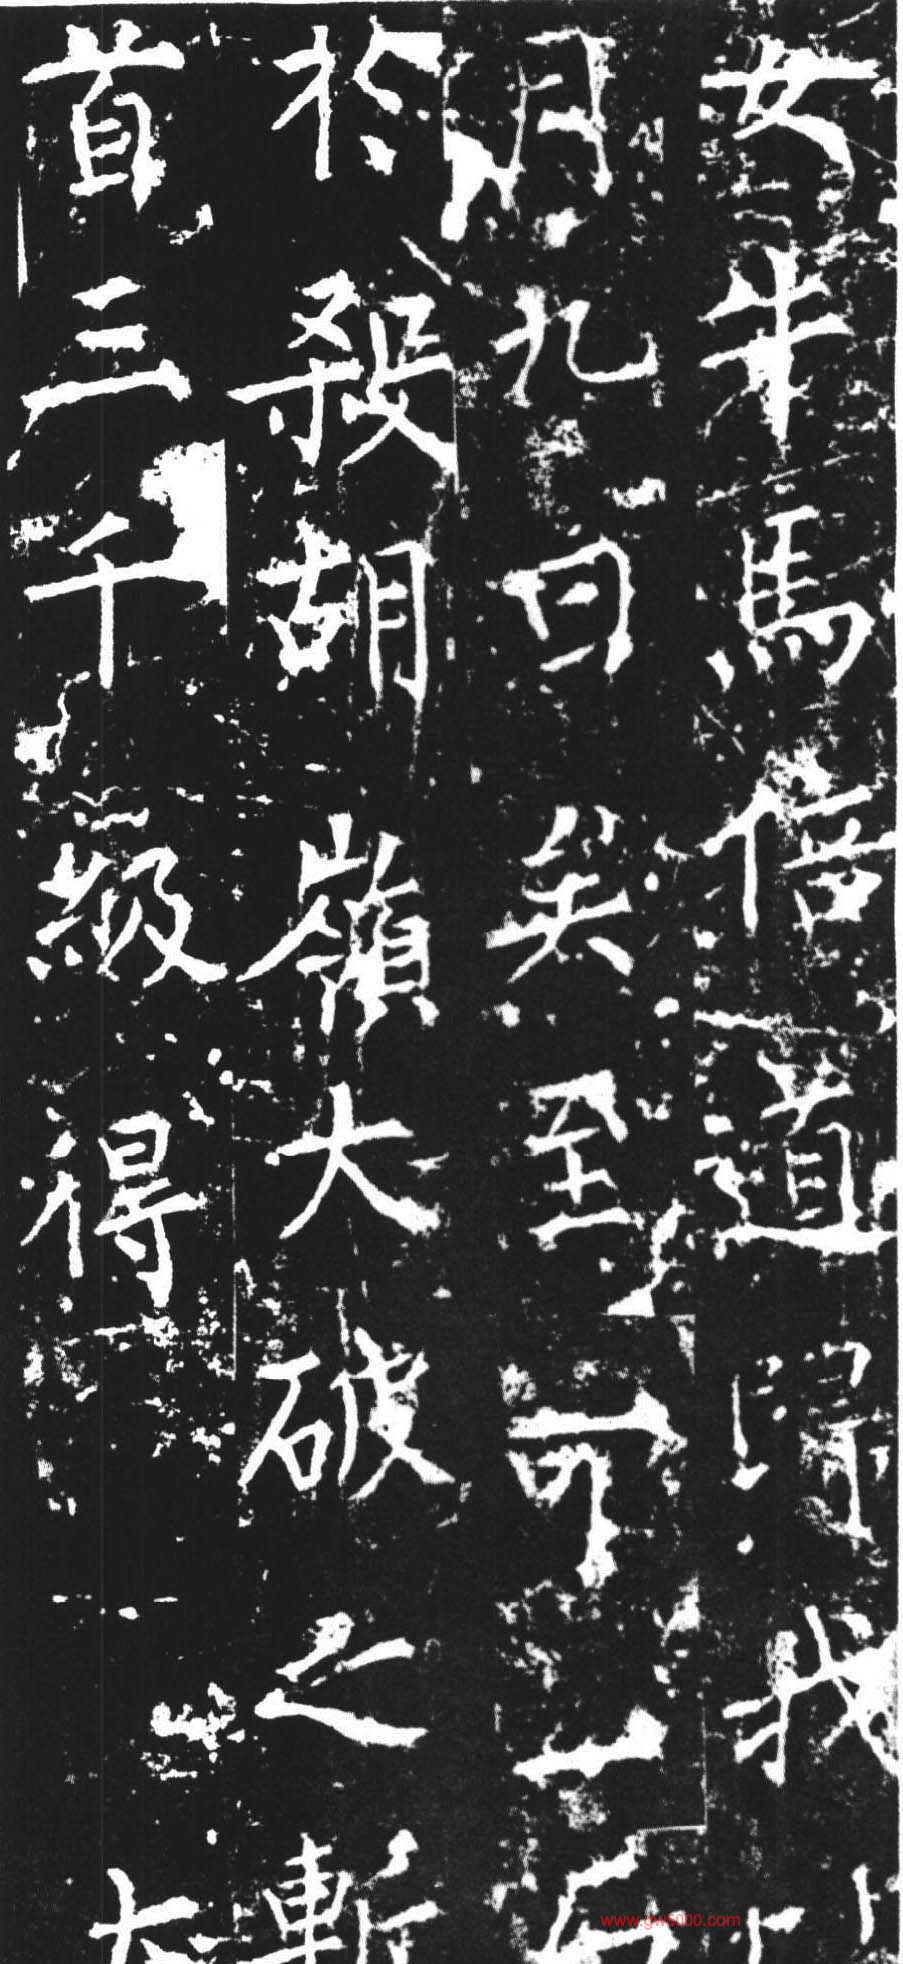 女牛馬倍道歸我
月九日矣至可
於殺胡嶺大破之斬
首三千級得
www.gw5000.com